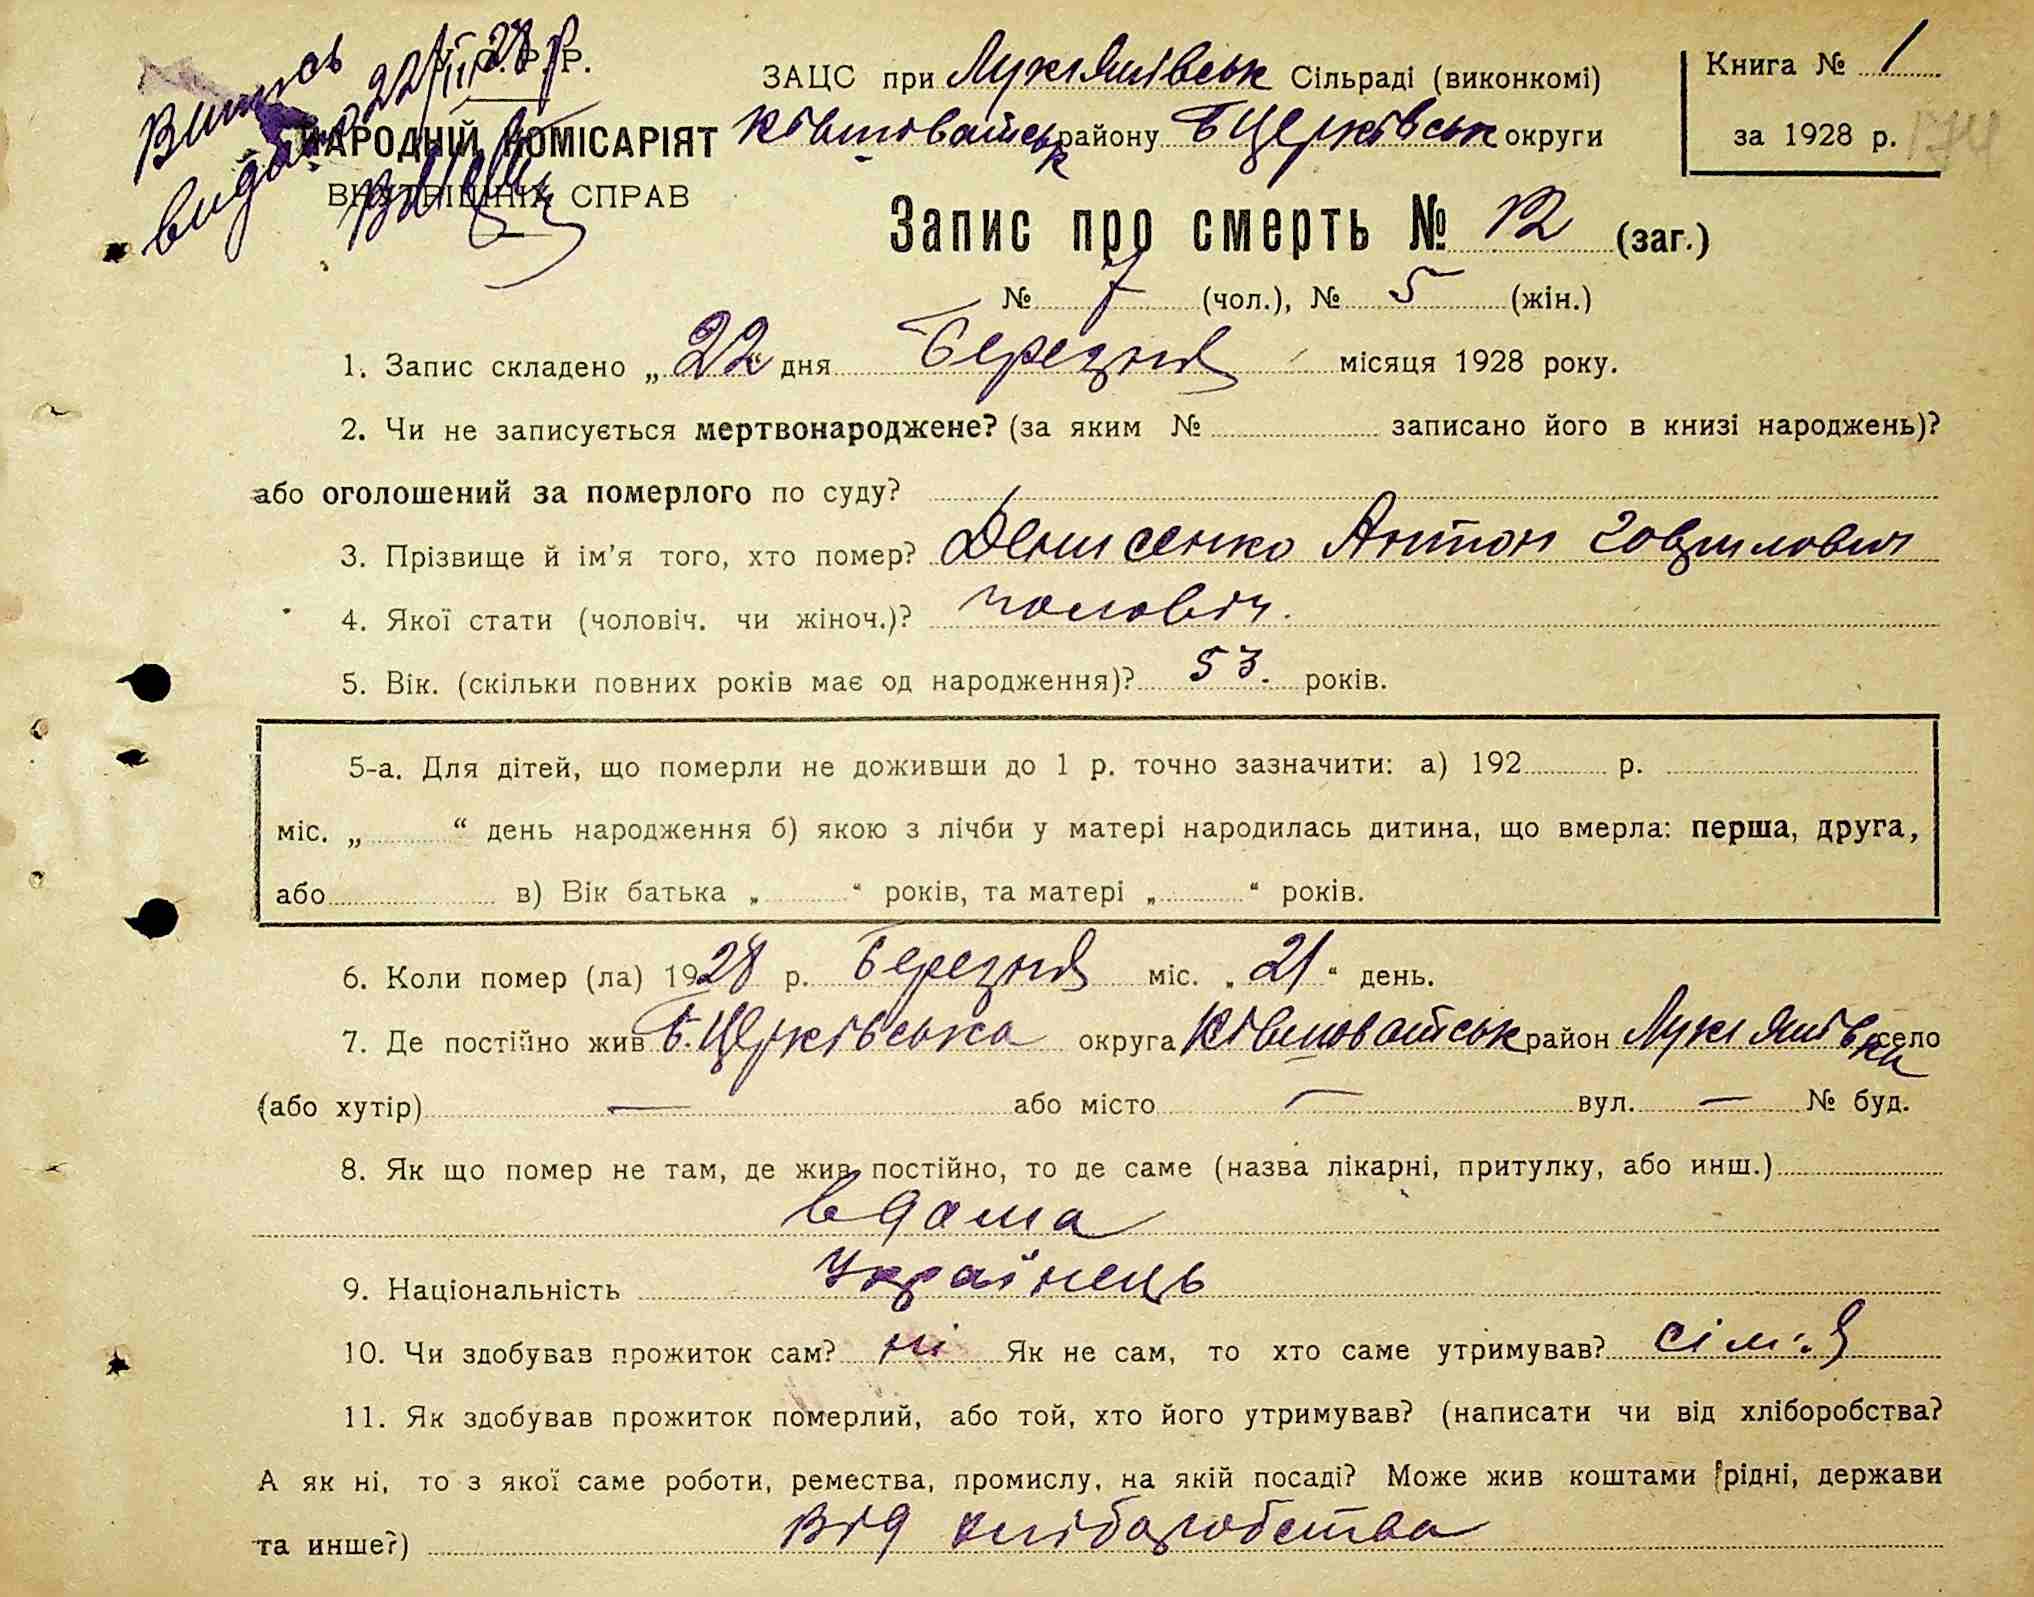 Випись
видано 22/III 28 р
У. С. Р. Р.
НАРОДНІЙ КОМІСАРІЯТ
ВНУТРІШНІХ СПРАВ
ЗАЦС при Лукіянівськ Сільраді (виконкомі)
Ківшоватськ району Б Церківськ округи
Книга № 1
за 1928 р. 174
Запис про смерть № 12 (заг.)
№ 7 (чол.), № 5 (жін.)
1. Запис складено „22“ дня Березня місяця 1928 року.
2. Чи не записується мертвонароджене? (за яким № записано його в книзі народжень)?
або оголошений за померлого по суду?
3. Прізвище й ім’я того, хто помер? Денисенко Антон Говрилович
4. Якої стати (чоловіч. чи жіноч.)? чоловіч.
5. Вік. (скільки повних років має од народження)? 53. років.
5-а. Для дітей, що померли не доживши до 1 р. точно зазначити: а) 192 р.
міс. „ “ день народження б) якою з лічби у матері народилась дитина, що вмерла: перша, друга,
або в) Вік батька „ “ років, та матері „ “ років.
6. Коли помер (ла) 1928 р. Березня міс. „21“ день.
7. Де постійно жив Б. Церківська округа Ківшоватськ район Лукіянівка село
(або хутір) — або місто — вул. — № буд.
8. Як що помер не там, де жив постійно, то де саме (назва лікарні, притулку, або инш.)
вдома
9. Національність Українець
10. Чи здобував прожиток сам? ні Як не сам, то хто саме утримував? сім:я
11. Як здобував прожиток померлий, або той, хто його утримував? (написати чи від хліборобства?
А як ні, то з якої саме роботи, ремества, промислу, на якій посаді? Може жив коштами рідні, держави
та инше?) Від хліборобства